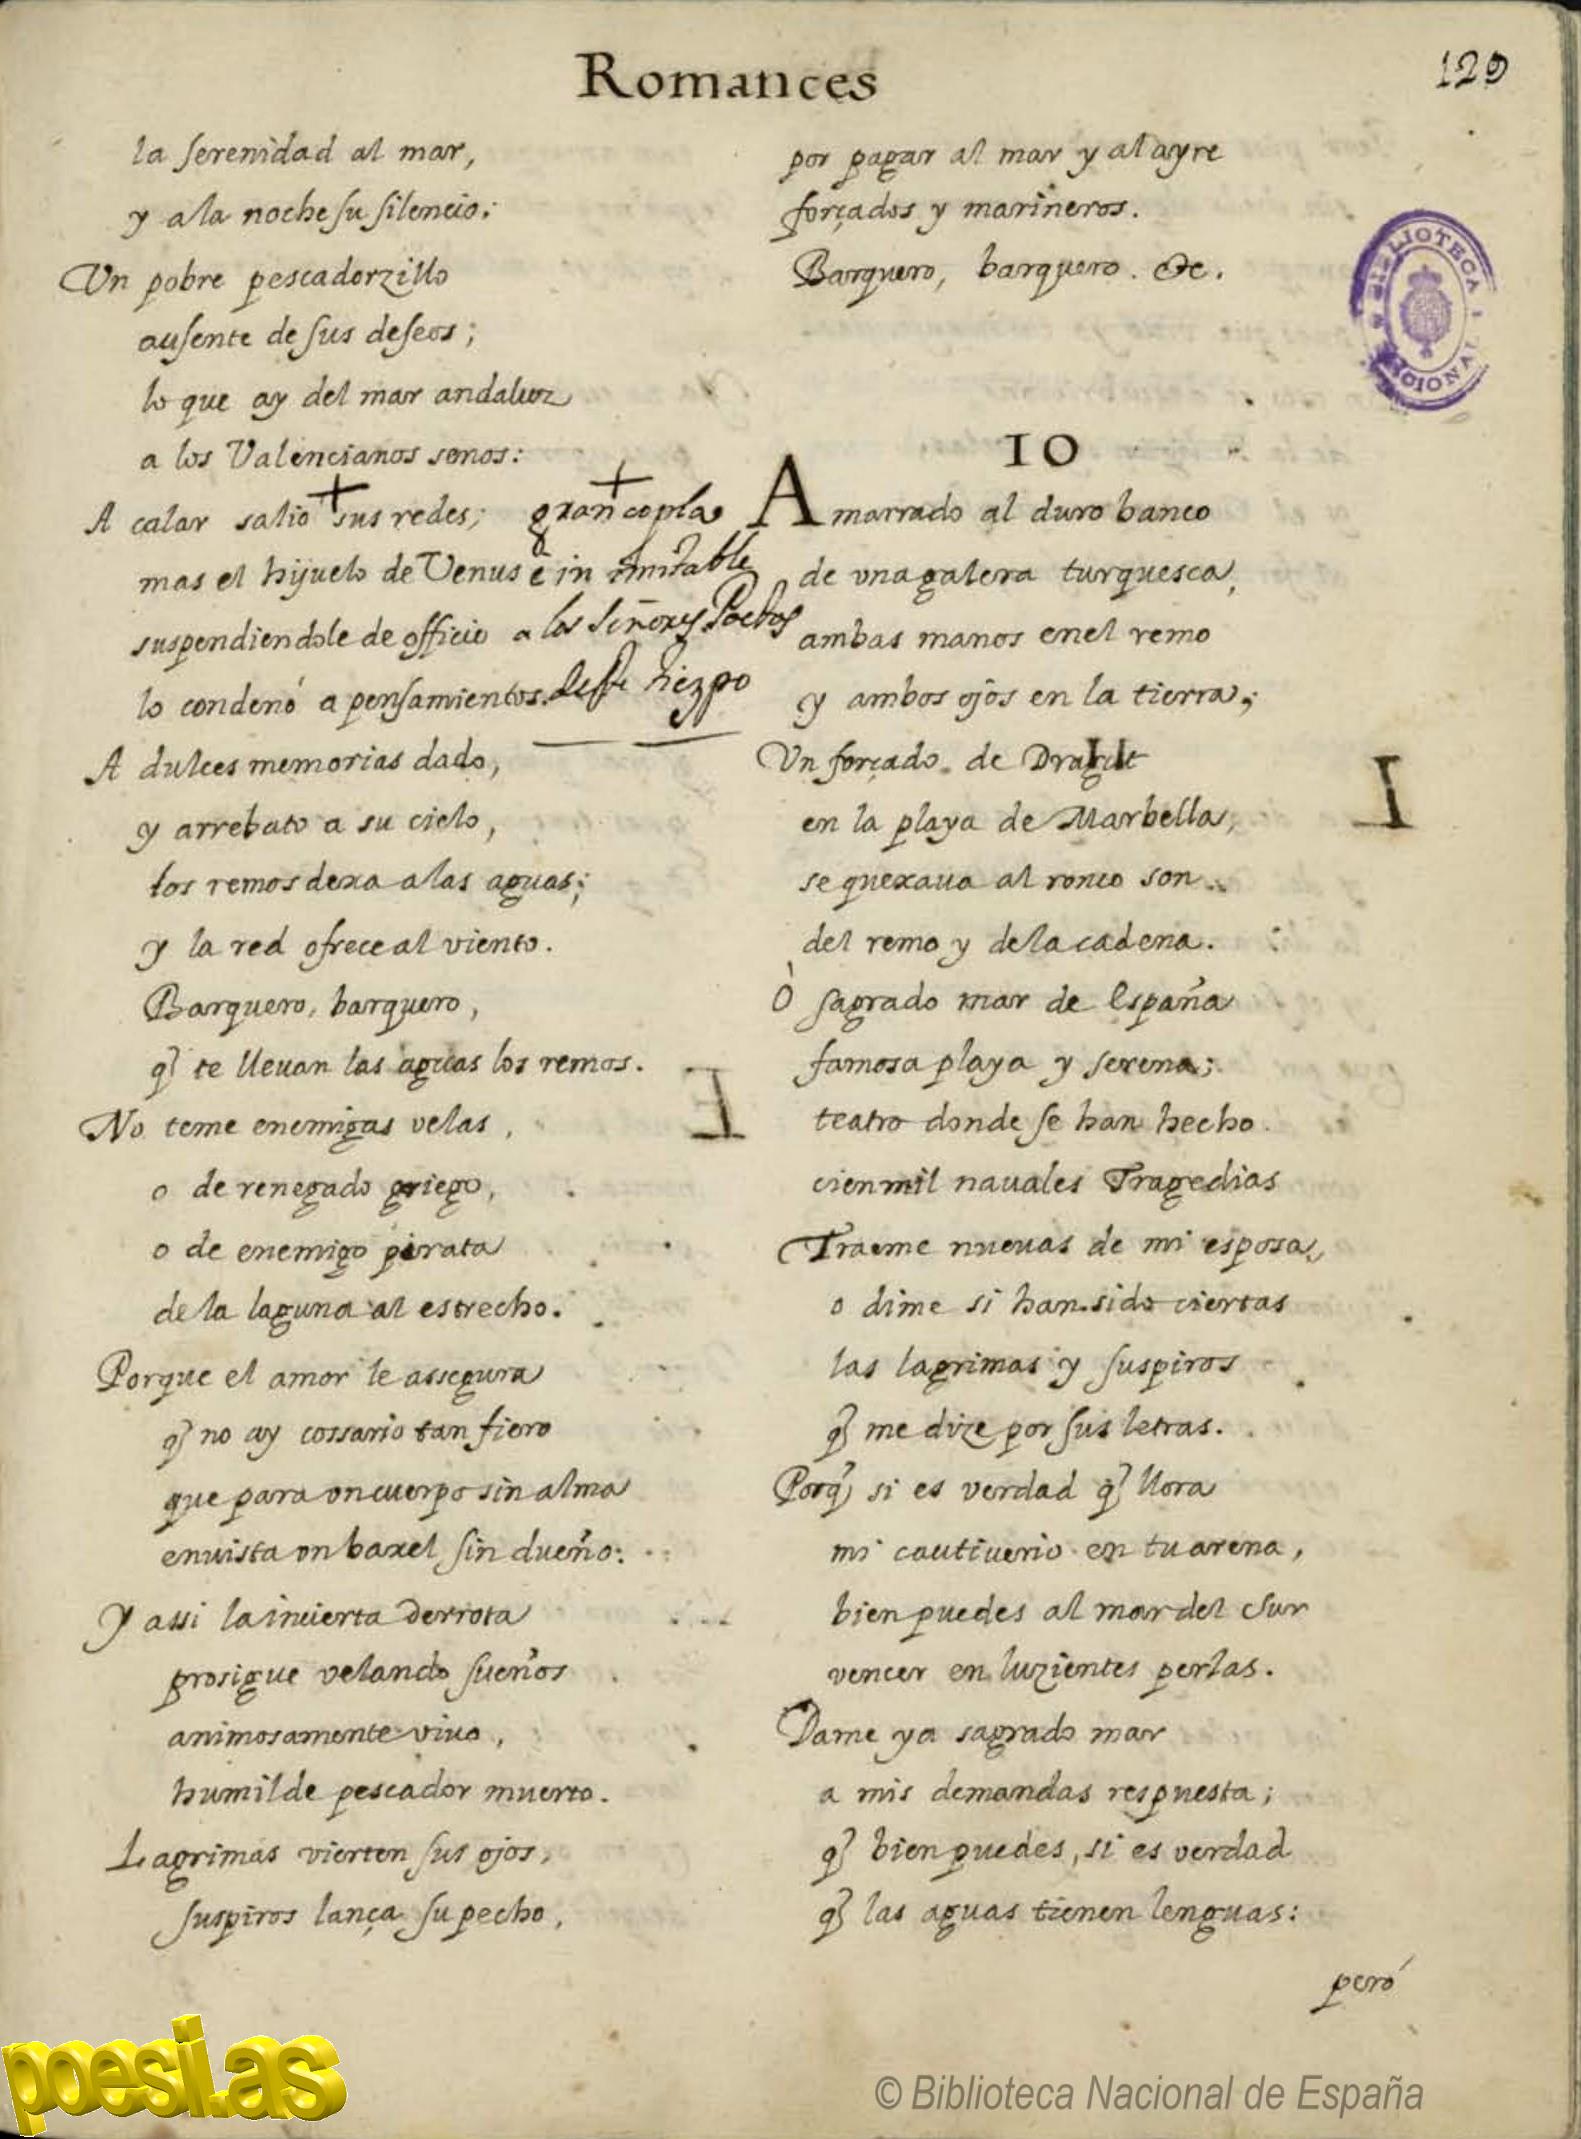 Romances
129
la serenidad al mar,
y a la noche su silencio:
Un pobre pescadorzillo
ausente de sus deseos;
lo que ay del mar andaluz
a los Valencianos senos:
A calar salio sus redes;
mas el hijuelo de Venus
suspendiendole de officio
lo condenó a pensamientos.
gran copla
è inimitable
a los señores Poetas
deste tiempo
A dulces memorias dado,
y arrebato a su cielo,
los remos dexa a las aguas;
y la red ofrece al viento.
Barquero, barquero,
q̃ te lleuan las aguas los remos.
No teme enemigas velas,
o de renegado griego,
o de enemigo pirata
de la laguna al estrecho.
Porque el amor le assegura
q̃ no ay cossario tan fiero
que para un cuerpo sin alma
enuista un baxel sin dueño:
Y assi la incierta derrota
prosigue velando sueños
animosamente viuo,
humilde pescador muerto.
Lagrimas vierten sus ojos,
suspiros lança su pecho,
por pagar al mar y al ayre
forçados y marineros.
Barquero, barquero. &c.
10
Amarrado al duro banco
de vna galera turquesca,
ambas manos en el remo
y ambos ojos en la tierra;
Un forçado de Dragut
en la playa de Marbella,
se quexaua al ronco son
del remo y de la cadena.
Ò sagrado mar de España
famosa playa y serena;
teatro donde se han hecho
cien mil nauales Tragedias
Traeme nueuas de mi esposa,
o dime si han sido ciertas
las lagrimas y suspiros
q̃ me dize por sus letras.
Porq̃ si es verdad q̃ llora
mi cautiuerio en tu arena,
bien puedes al mar del Sur
vencer en luzientes perlas.
Dame ya sagrado mar
a mis demandas respuesta;
q̃ bien puedes, si es verdad
q̃ las aguas tienen lenguas:
peró
BIBLIOTECA NACIONAL
poesi.as
© Biblioteca Nacional de España